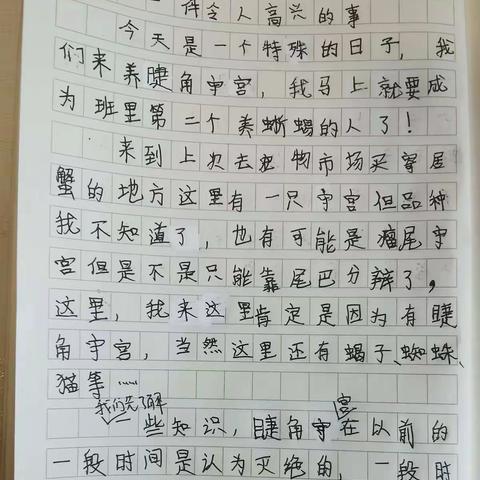 件令人高兴的事
今天是一个特殊的日子，我
们来养睫角守宫，我马上就要成
为班里第二个养蜥蜴的人了！
来到上次去宠物市场买寄居
蟹的地方这里有一只守宫但品种
我不知道了，也有可能是瘤尾守
宫但是不是只能靠尾巴分辨了，
这里，我来这里肯定是因为有睫
角守宫，当然这里还有蝎子、蜘蛛、
猫等……
我们先了解
一些知识，睫角守宫在以前的
一段时间是认为灭绝的，一段时